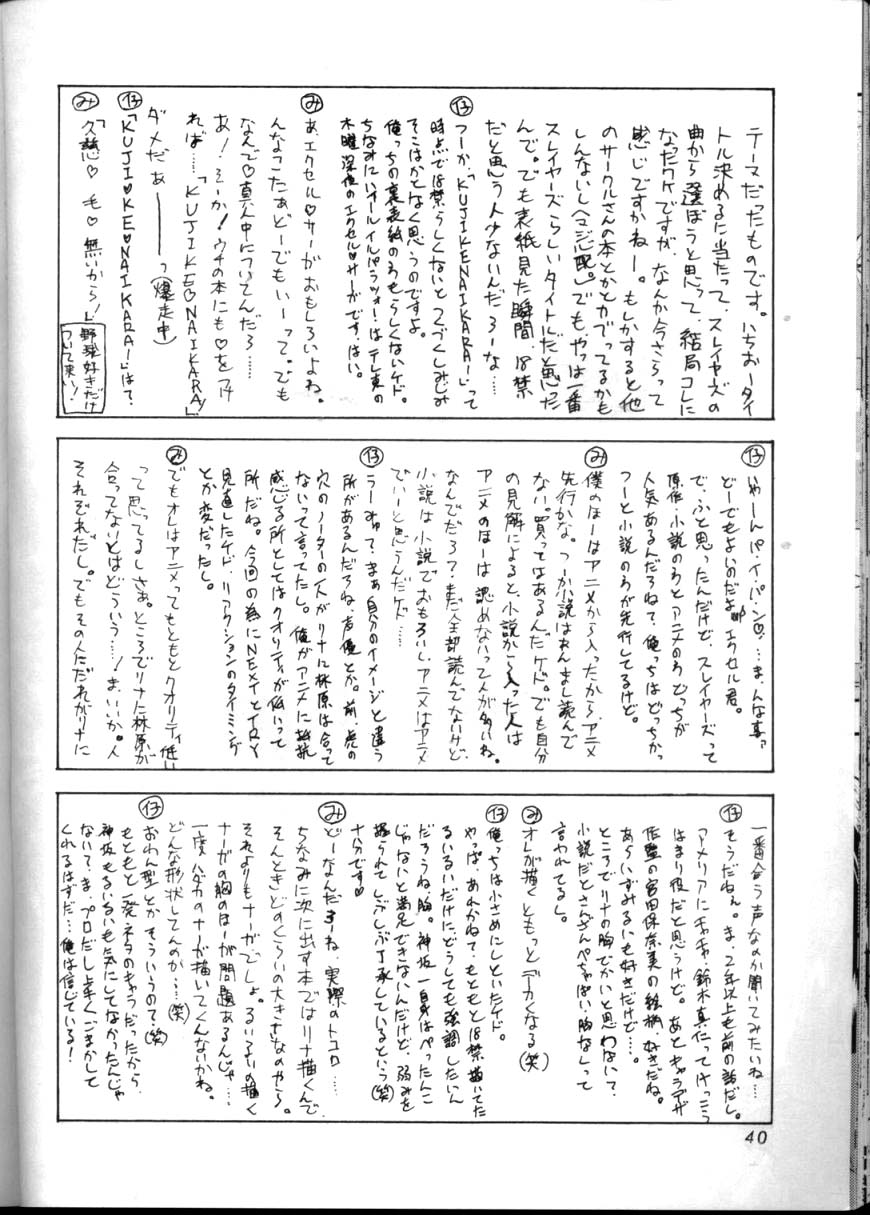 テーマだったものです。いちおータイ
トル決めるに当たって、スレイヤーズの
曲から選ぼうと思って、結局コレに
なったワケですが、なんか今さらって
感じですかねー。もしかすると他
のサークルさんの本とかとカブってるかも
しんないし(マジ心配。)でも、やっぱ一番
スレイヤーズらしいタイトルだと思った
んで。でも表紙見た瞬間、18禁
だと思う人少ないんだろーな……
仔 つーか、「KUJIKENAIKARA!」って
時点で18禁らしくないと、つくづくしみじみ
そこはかとなく思うのですよ。
俺っちの裏表紙のわもらしくないケド。
ちなみに、「オールイルパラッツォ!」はテレ東の
木曜深夜のエクセル♡サーガです、はい。
み あ、エクセル♡サーガおもしろいよね。
んなこたぁどーでもいーって。でも
なんで♡真ん中についてんだろ……
あ!そーか!ウチの本にも♡をつけ
れば……「KUJIKE♡NAIKARA!」
ダメだぁ―――っ(爆走中)
仔「KUJI♡KE♡NAIKARA!」は?
み「久慈♡毛♡無いから!」
野球好きだけ
ついて来い!
仔 いやーんパ・イ・パン♡……ま、んな事
どーでもよいのだよ、エクセル君。
で、ふと思ったんだけど、スレイヤーズって
原作・小説のわとアニメのわどっちが
人気あるんだろね?俺っちはどっちかっ
つーと小説のわが先行してるけど。
み 僕のほーはアニメから入ったから、アニメ
先行かな。つーか小説はあんまし読んで
ない。買ってはあるんだケド。でも自分
の見解によると、小説から入った人は
アニメのほーは認めないって人が多いね。
なんでだろ?まだ全部読んでないけど、
小説は小説でおもろいし、アニメはアニメ
でいーと思うんだケド……
仔 うーみゅ?まぁ自分のイメージと違う
所があるんだろね、声優とか。前、虎の
穴のノーターの人がリナに林原は合って
ないって言ってたし。俺がアニメに抵抗
感じる所としてはクオリティが低いって
所だね。今回の為にNEXTとTRY
見直したケド、リアクションのタイミング
とか変だったし。
み でもオレはアニメってもともとクオリティ低い
って思ってるしさぁ。ところでリナに林原が
合ってないとはどういう……!ま、いいか。人
それぞれだし。でもその人だれがリナに
一番合う声なのか聞いてみたいね……
仔 そうだねぇ。ま、2年以上も前の話だし。
アメリアにチャチャ、鈴木真仁ってけっこう
はまり役だと思うけど。あとキャラデザ
作監の宮田保奈美の絵柄、好きだね。
あらいずみるいも好きだけど…。
ところでリナの胸でかいと思わない?
小説だとさんざんぺちゃぱい、胸なしって
言われてるし。
み オレが描くともっとデカくなる(笑)
仔 俺っちは小さめにしといたケド。
やっぱ、あれかね?もともと18禁描いてた
るいるいだけに、どうしても強調したいん
だろうね、胸。神坂一自身はぺったんこ
じゃないと満足できないんだけど、弱みを
握られてしぶしぶ了承しているという(笑)
十分です♡
み どーなんだろーね、実際のトコロ……
ちなみに次に出す本ではリナ描くんで、
そんときどのくらいの大きさなのやら。
それよりもナーガでしょ。るいるいの描く
ナーガの胸のほーが問題あるんじゃ……
一度ハダカのナーガ描いてくんないかね。
どんな形状してんのか……(笑)
仔 おわん型とかそういうので(笑)
もともと一発ネタのキャラだったから、
神坂もるいるいも気にしてなかったんじゃ
ないて、ま、プロだし上手くごまかして
くれるはずだ…俺は信じている!
40